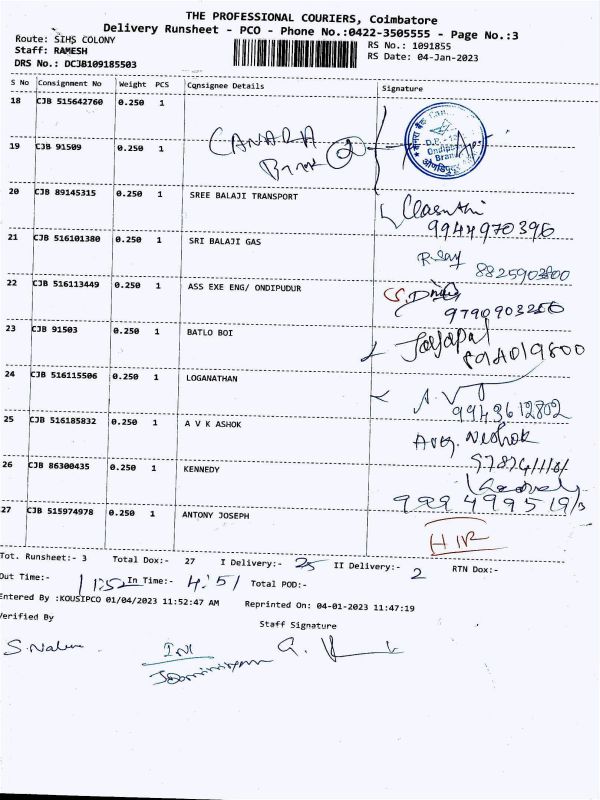 THE PROFESSIONAL COURIERS, Coimbatore
Delivery Runsheet - PCO - Phone No.:0422-3505555 - Page No.:3
Route: SIHS COLONY
RS No.: 1091855
Staff: RAMESH
RS Date: 04-Jan-2023
DRS No.: DCJB109185503
S No Consignment No Weight PCS Consignee Details Signature
18 CJB 515642760 0.250 1
19 CJB 91509 0.250 1 CANARA
20 CJB 89145315 0.250 1 SREE BALAJI TRANSPORT
9944970396
21 CJB 516101380 0.250 1 SRI BALAJI GAS
8825902800
22 CJB 516113449 0.250 1 ASS EXE ENG/ ONDIPUDUR
23 CJB 91503 0.250 1 BATLO BOI
24 CJB 516115506 0.250 1 LOGANATHAN
9943612802
25 CJB 516185832 0.250 1 A V K ASHOK
26 CJB 86300435 0.250 1 KENNEDY
27 CJB 515974978 0.250 1 ANTONY JOSEPH
Tot. Runsheet:- 3 Total Dox:- 27 I Delivery:- 25 II Delivery:- 2 RTN Dox:-
Out Time:- 11:52 In Time:- 4:51 Total POD:-
Entered By :KOUSIPCO 01/04/2023 11:52:47 AM Reprinted On: 04-01-2023 11:47:19
Verified By
Staff Signature